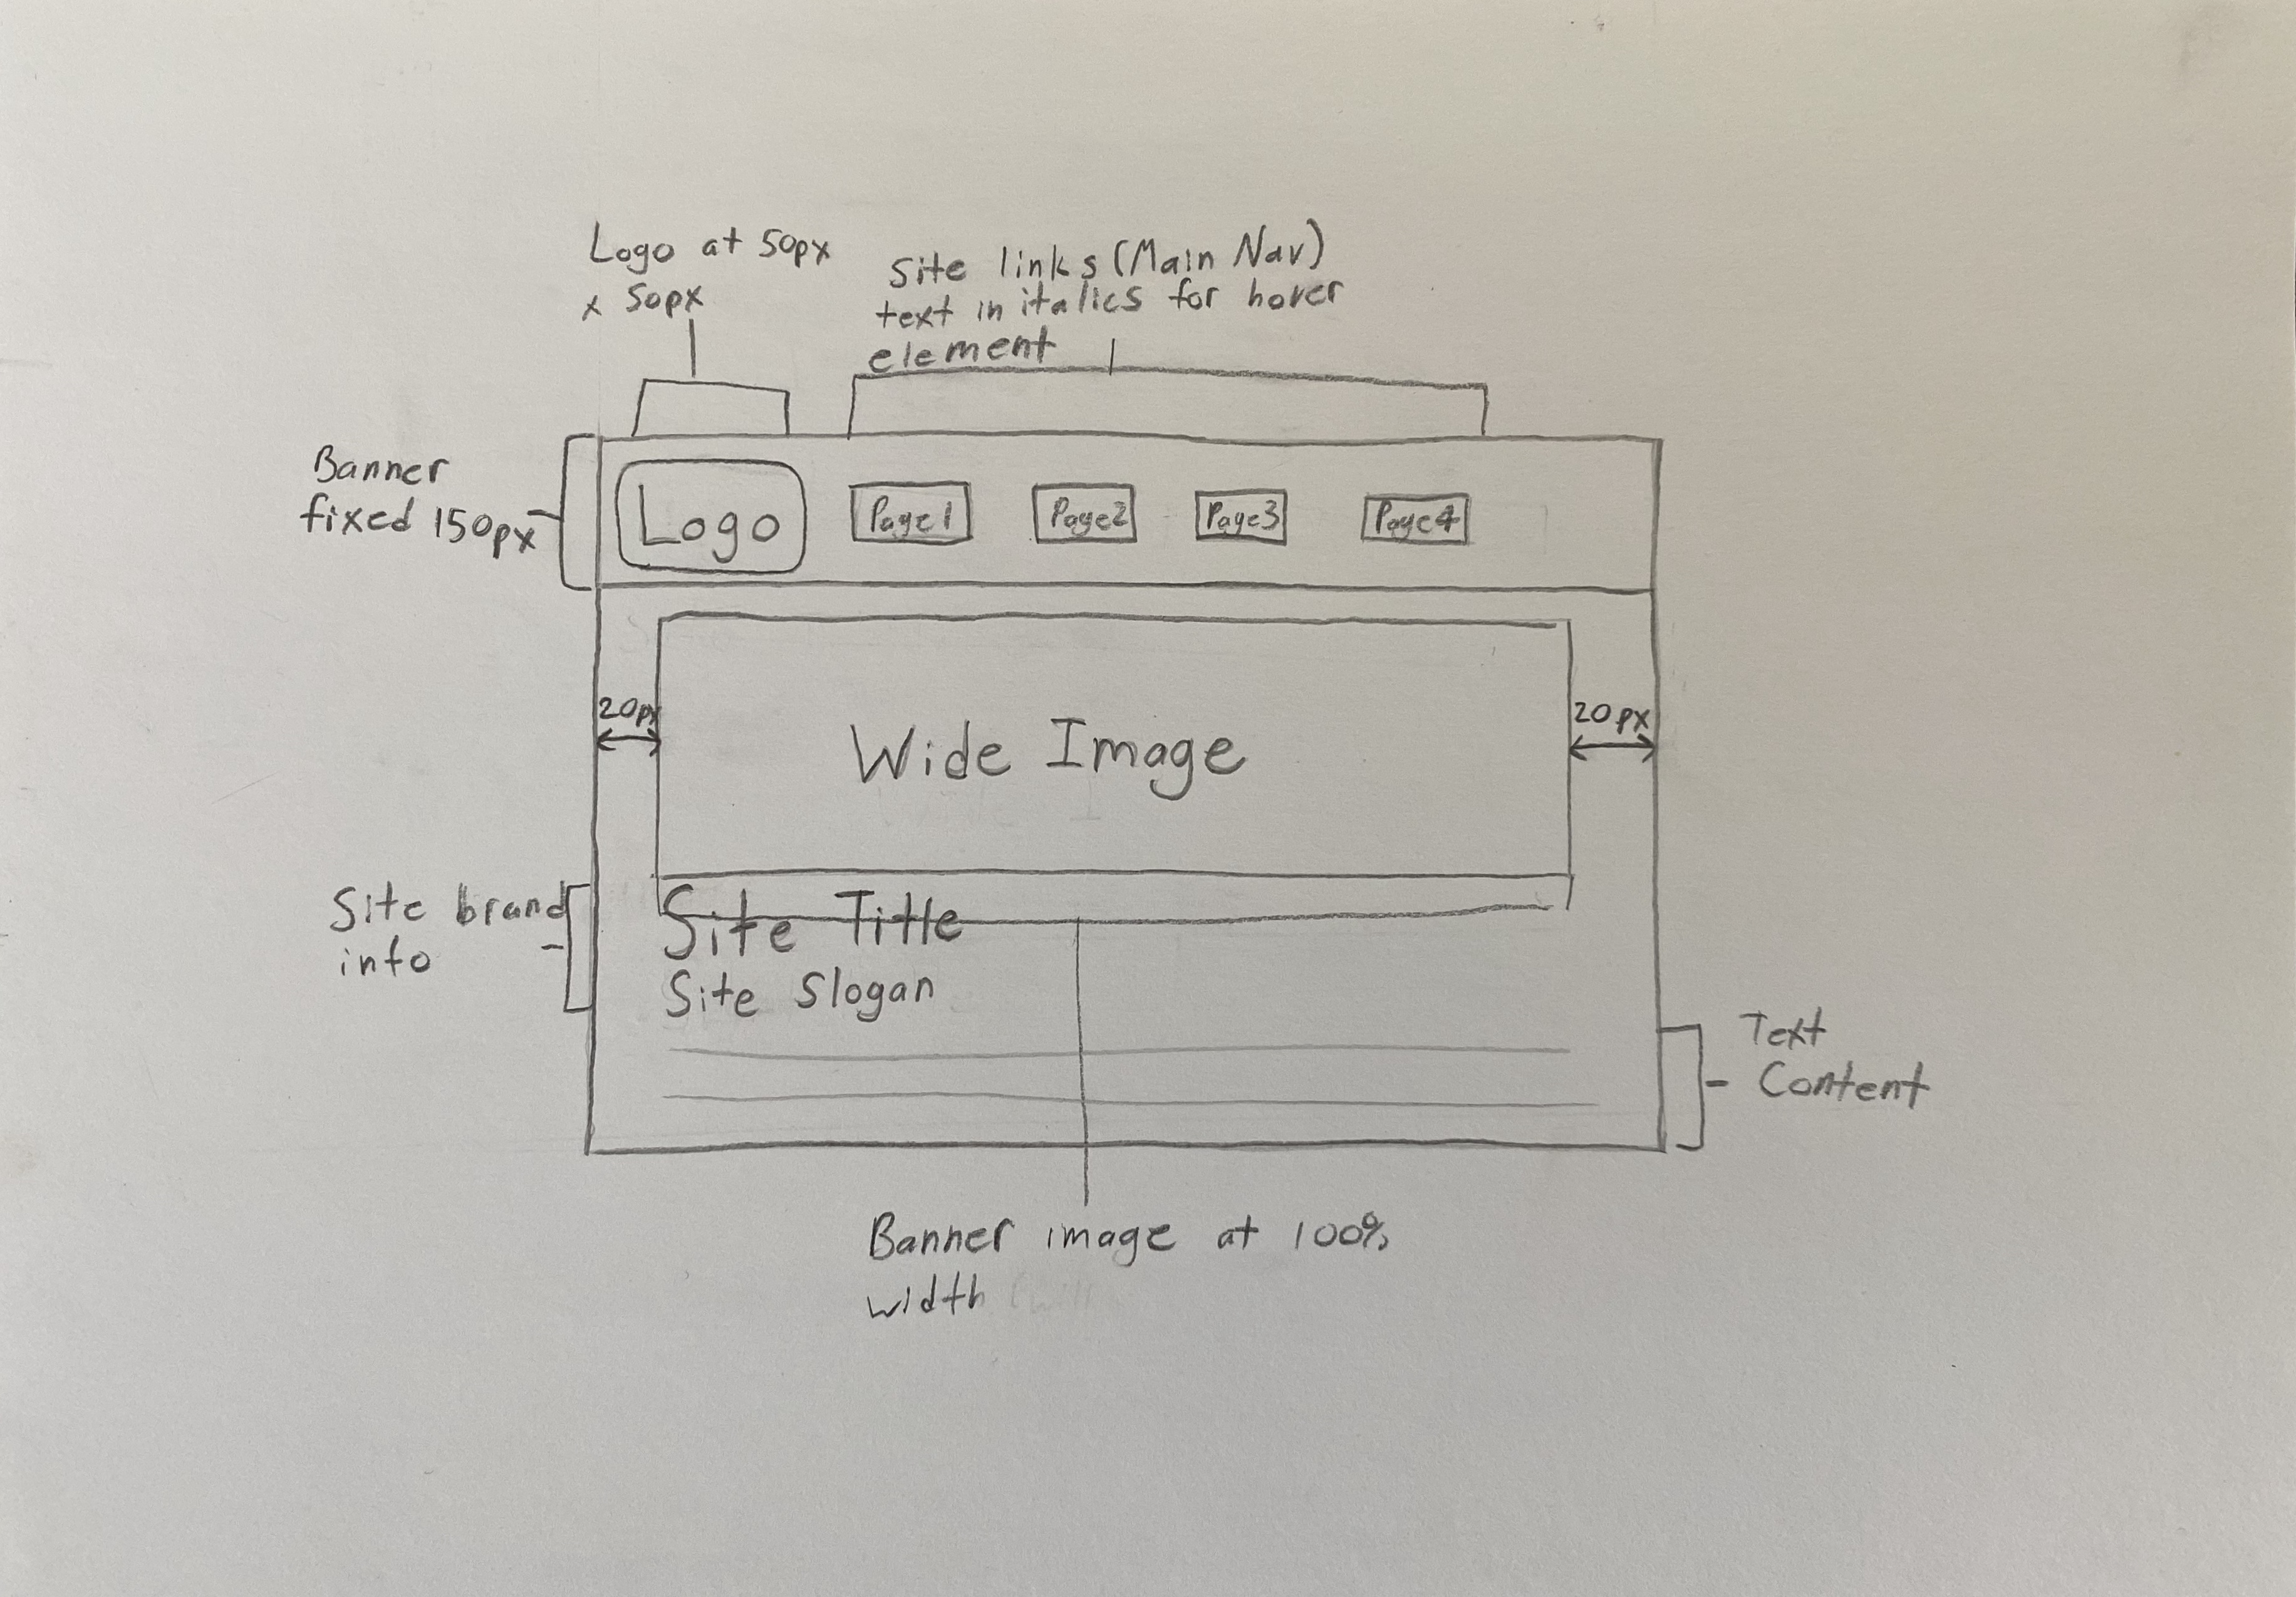 Logo at 50px
x 50px
Site links (Main Nav)
text in italics for hover
element
Banner
fixed 150px
Logo
Page1
Page2
Page3
Page4
20px
20px
Wide Image
Site brand
info
Site Title
Site Slogan
Text
Content
Banner image at 100%
width